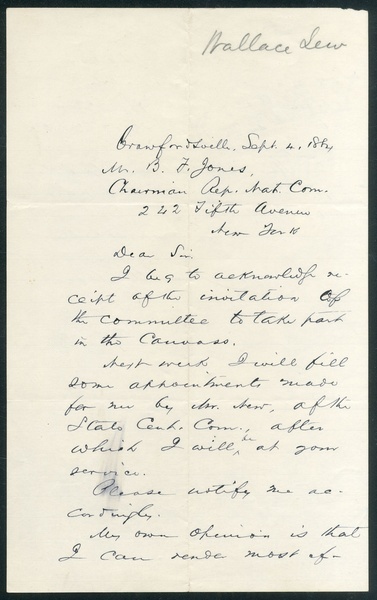 Wallace Lew
Crawfordsville, Sept. 4, 1884
Mr. B. F. Jones,
Chairman Rep. Nat. Com.
242 Fifth Avenue
New York
Dear Sir:
I beg to acknowledge re-
ceipt of the invitation of
the committee to take part
in the Canvass.
Next week I will fill
some appointments made
for me by Mr. New, of the
State Cent. Com., after
which I will be at your
service.
Please notify me ac-
cordingly.
My own opinion is that
I can render most ef-